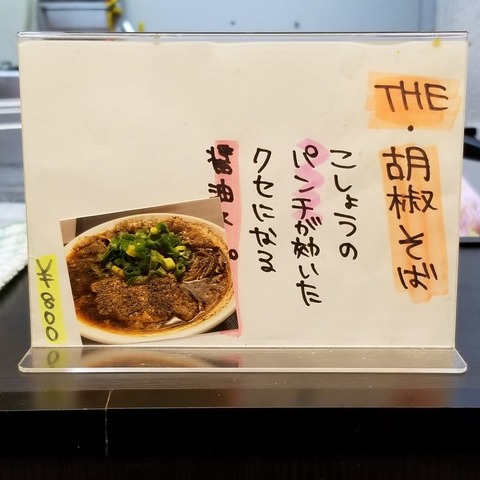 THE・胡椒そば
こしょうの
パンチが効いた
クセになる
醤油
¥800